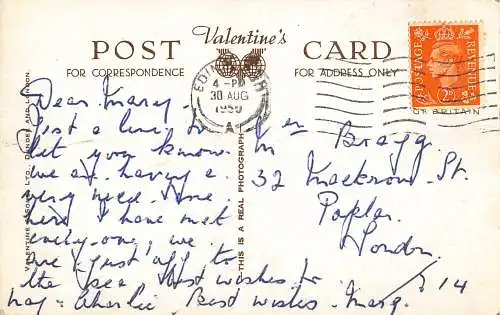 Valentine's
POST CARD
FOR CORRESPONDENCE
FOR ADDRESS ONLY
POSTAGE REVENUE
2D
EDINBURGH
4 - PM
30 AUG
1950
A
OF BRITAIN
VALENTINE & SONS, LTD., DUNDEE AND LONDON.
THIS IS A REAL PHOTOGRAPH
Dear Marg.
Just a line to
let you know
we are having a
very nice time
here I have met
every-one, we
are just off to
the sea Best wishes to
Charlie, Best wishes Marg.
Bragg.
32 St.
Poplar.
London
E 14